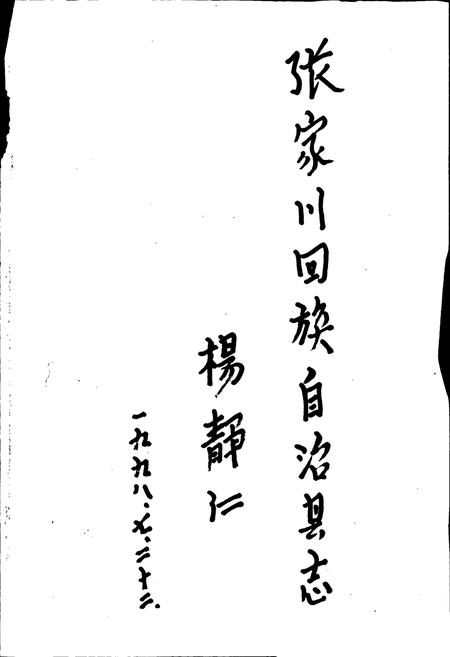 张家川回族自治县志
楊靜仁
一九九八.七.二十二.